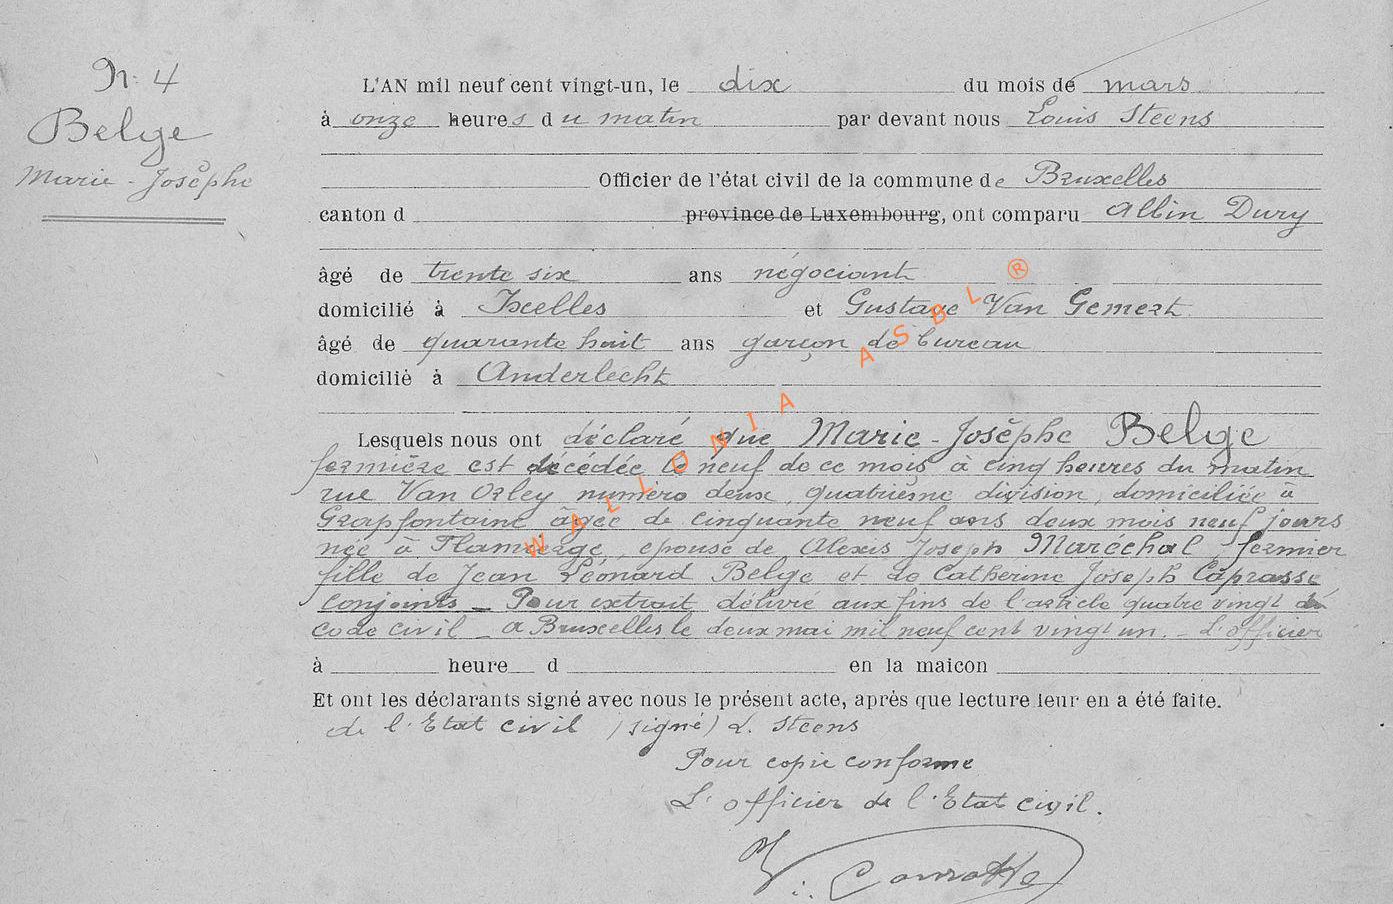 N: 4
Belge
Marie-Josèphe
L'AN mil neuf cent vingt-un, le dix du mois de mars
à onze heures du matin par devant nous Louis Steens
Officier de l'état civil de la commune de Bruxelles
canton d province de Luxembourg, ont comparu Albin Dury
âgé de trente six ans négociant
domicilié à Ixelles et Gustave Van Gemert
âgé de quarante huit ans garçon de bureau
domicilié à Anderlecht
Lesquels nous ont déclaré que Marie-Josèphe Belge
fermière est décédée le neuf de ce mois, à cinq heures du matin
rue Van Orley numéro deux, quatrième division, domiciliée à
Grapfontaine âgée de cinquante neuf ans deux mois neuf jours
née à Flamierge, épouse de Alexis Joseph Maréchal, fermier
fille de Jean Léonard Belge et de Catherine Joseph Caprasse
conjoints _ Pour extrait délivré aux fins de l'article quatre vingt du
code civil _ a Bruxelles le deux mai mil neuf cent vingt un. - L'officier
à heure d en la maicon
Et ont les déclarants signé avec nous le présent acte, après que lecture leur en a été faite.
de l'Etat civil (signé) L. Steens
Pour copie conforme
L'officier de l'Etat civil.
WALLONIA ASBL ®